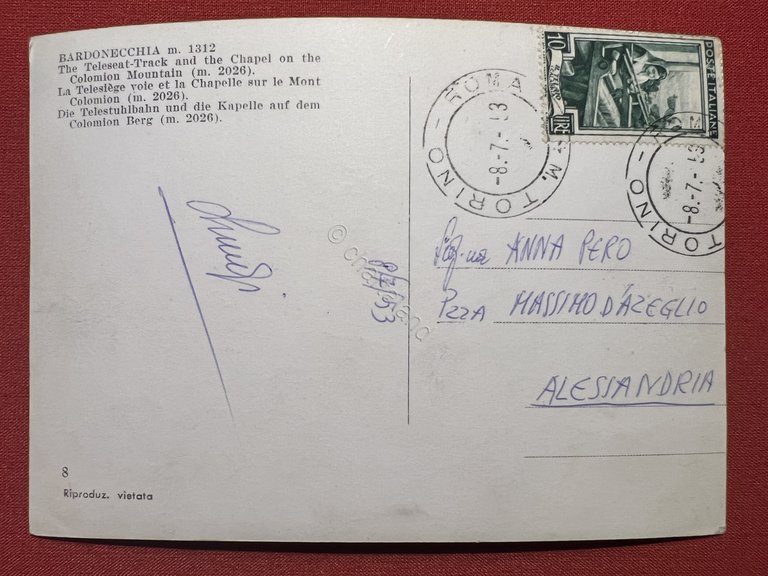 BARDONECCHIA m. 1312
The Teleseat-Track and the Chapel on the
Colomion Mountain (m. 2026).
La Telesiège voie et la Chapelle sur le Mont
Colomion (m. 2026).
Die Telestuhlbahn und die Kapelle auf dem
Colomion Berg (m. 2026).
8
Riproduz. vietata
Luigi
8/7/53
10
LIRE
POSTE ITALIANE
ROMA - M. TORINO - TORINO
-8.-7.- 53
TORINO
-8.-7.- 53
Sig.na ANNA PERO
PZZA MASSIMO D'AZEGLIO
ALESSANDRIA